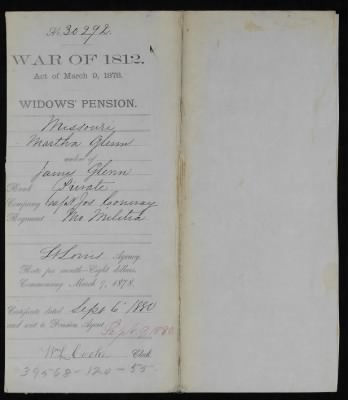 No. 30292.
WAR OF 1812.
Act of March 9, 1878.
WIDOWS' PENSION.
Missouri
Martha Glenn
widow of
James Glenn
Rank Private
Company Capt Jos Conway
Regiment Mo Militia
St Louis Agency.
Rate per month—Eight dollars.
Commencing March 9, 1878.
Certificate dated Sept 6 1880
and sent to Pension Agent Sept 9 1880
Clerk.
39568-120-55